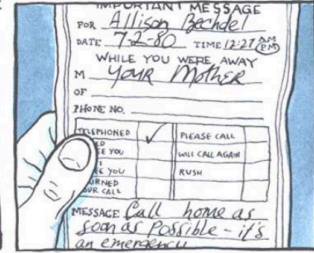 IMPORTANT MESSAGE
FOR Allison Bechdel
DATE 7-2-80 TIME 12:27 AM PM
WHILE YOU WERE AWAY
M Your Mother
OF
PHONE NO.
TELEPHONED ✓ PLEASE CALL
EE YOU WILL CALL AGAIN
EE YOU RUSH
URNED
UR CALL
MESSAGE Call home as
soon as possible - it's
an emergency